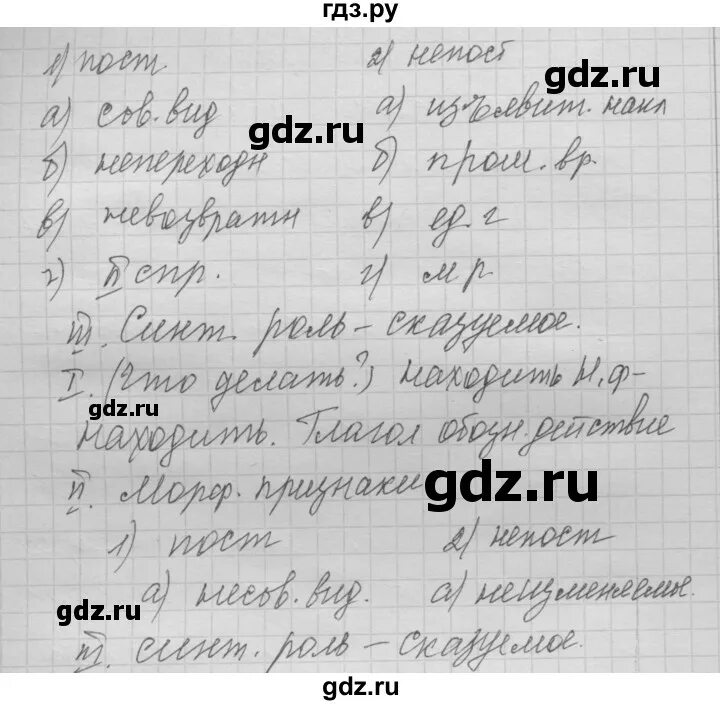 гдз.ру
1) пост. 2) непост
gdz.ru
а) сов. вид а) изъявит. накл
gdz.ru
б) непереходн б) прош. вр.
в) невозвратн в) ед. г
г) II спр. г) м р
III. Синт. роль – сказуемое.
I. (Что делать?) находить Н. ф –
находить. Глагол обозн. действие
II. Морф. признаки
gdz.ru
1) пост 2) непост
а) несов. вид. а) неизменяемое.
gdz.ru
III. синт. роль – сказуемое.
gdz.ru